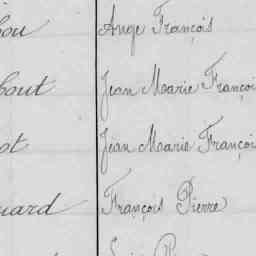 Ange François
bout Jean Marie Françoi
ot Jean Marie Françoi
uard François Pierre